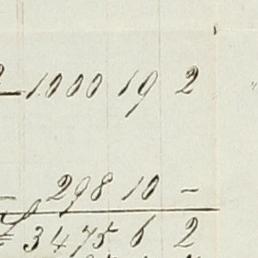 1000 19 2
298 10 -
3475 6 2